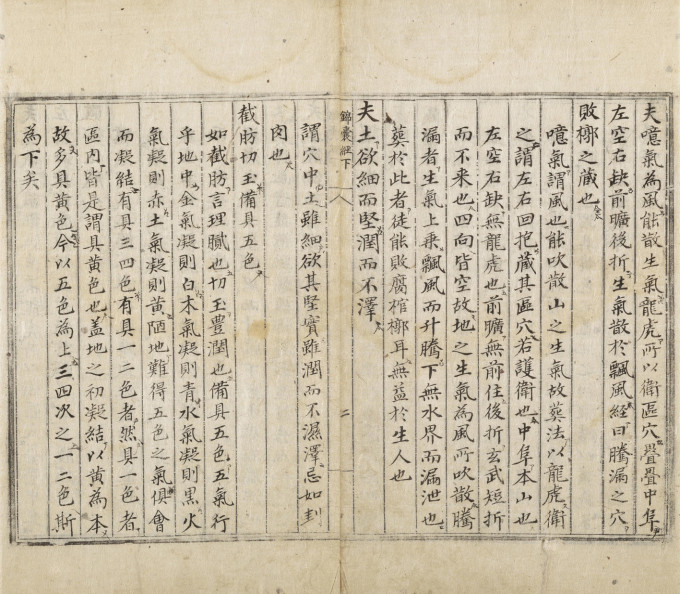 夫噫氣為風能散生氣龍虎所以衛區穴疊疊中阜
左空右缺前曠後折生氣散於飄風経曰騰漏之穴
敗槨之藏也
噫氣謂風也能吹散山之生氣故葬法以龍虎衛
之謂左右回抱藏其區穴若護衛也中阜本山也
左空右缺無龍虎也前曠無前住後折玄武短折
而不来也四向皆空故地之生氣為風所吹散騰
漏者生氣上乗飄風而升騰下無水界而漏泄也
葬於此者徒能敗腐棺槨耳無益於生人也
夫土欲細而堅潤而不澤
錦囊註下
二
謂穴中土雖細欲其堅實雖潤而不濕澤忌如刲
肉也
截肪切玉備具五色
如截肪言理膩也切玉豊潤也備具五色五氣行
乎地中金氣凝則白木氣凝則青水氣凝則黒火
氣凝則赤土氣凝則黄陋地難得五色之氣俱會
而凝結有具三四色有具一二色者然具一色者
區内皆是謂具黄色也盖地之初凝結以黄為本
故多具黄色今以五色為上三四次之一二色斯
為下矣